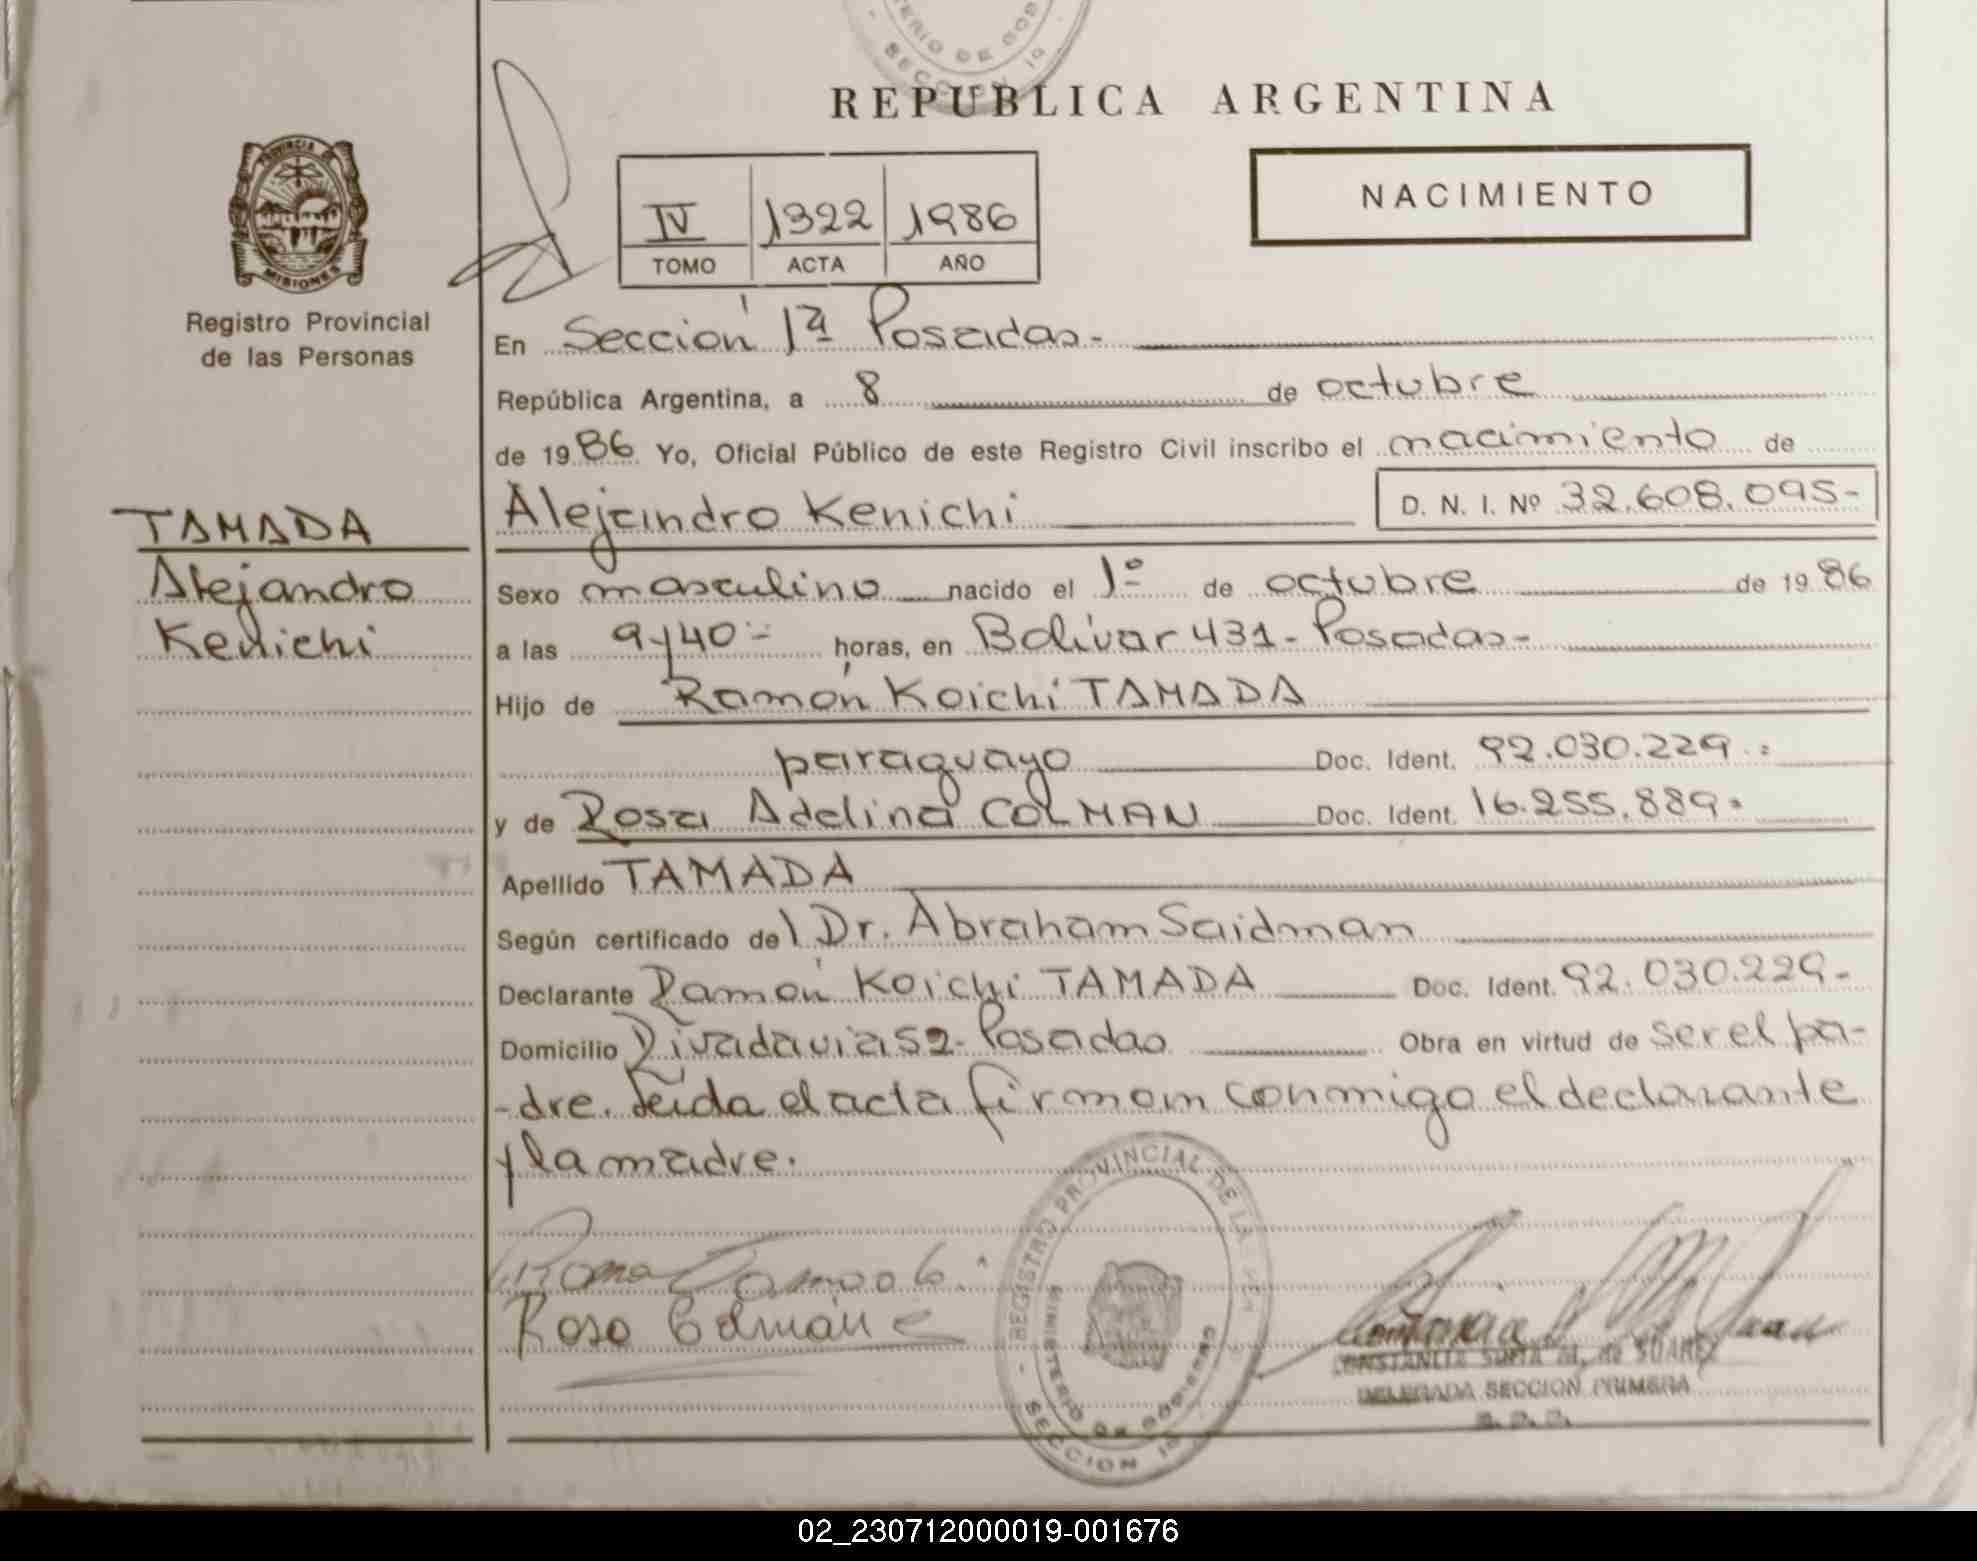 TERIO DE GOB
SECCION 1a
REPUBLICA ARGENTINA
PROVINCIA DE
MISIONES
Registro Provincial
de las Personas
IV 1322 1986
TOMO ACTA AÑO
NACIMIENTO
En Sección 1ª Posadas-
República Argentina, a 8 de octubre
de 1986 Yo, Oficial Público de este Registro Civil inscribo el nacimiento de
Alejandro Kenichi D. N. I. Nº 32.608.095-
TAMADA
Alejandro
Kenichi
Sexo masculino nacido el 1º de octubre de 1986
a las 9y40- horas, en Bolívar 431- Posadas-
Hijo de Ramón Koichi TAMADA
paraguayo Doc. Ident. 92.030.229.
y de Rosa Adelina COLMAN Doc. Ident. 16.255.889.
Apellido TAMADA
Según certificado del Dr. Abraham Saidman
Declarante Ramón Koichi TAMADA Doc. Ident. 92.030.229-
Domicilio Rivadavia 52- Posadas Obra en virtud de ser el pa-
-dre. Leída el acta firman conmigo el declarante
y la madre.
Rosa Colmán
REGISTRO PROVINCIAL DE LA
MINISTERIO DE GOBIERNO
SECCION 1a
CONSTANCIA SUNTA M. de SUAREZ
DELEGADA SECCION PRIMERA
02_230712000019-001676